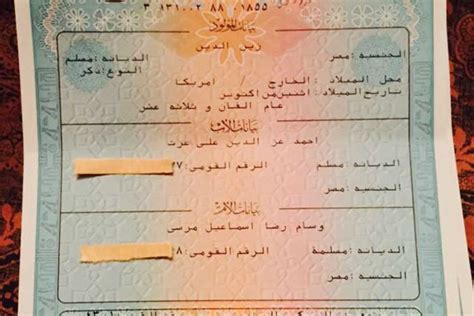 بيانات المولود
زين الدين
الجنسيه :مصر
الديانه :مسلم
النوع :ذكر
محل الميلاد : الخارج / امريكا
تاريخ الميلاد : اثنين من اكتوبر
عام الفان و ثلاثه عشر
بيانات الأب
احمد عز الدين على عزت
الديانه :مسلم
الرقم القومى :
الجنسيه :مصر
بيانات الأم
وسام رضا اسماعيل مرسى
الديانه :مسلمة
الرقم القومى :
الجنسيه :مصر